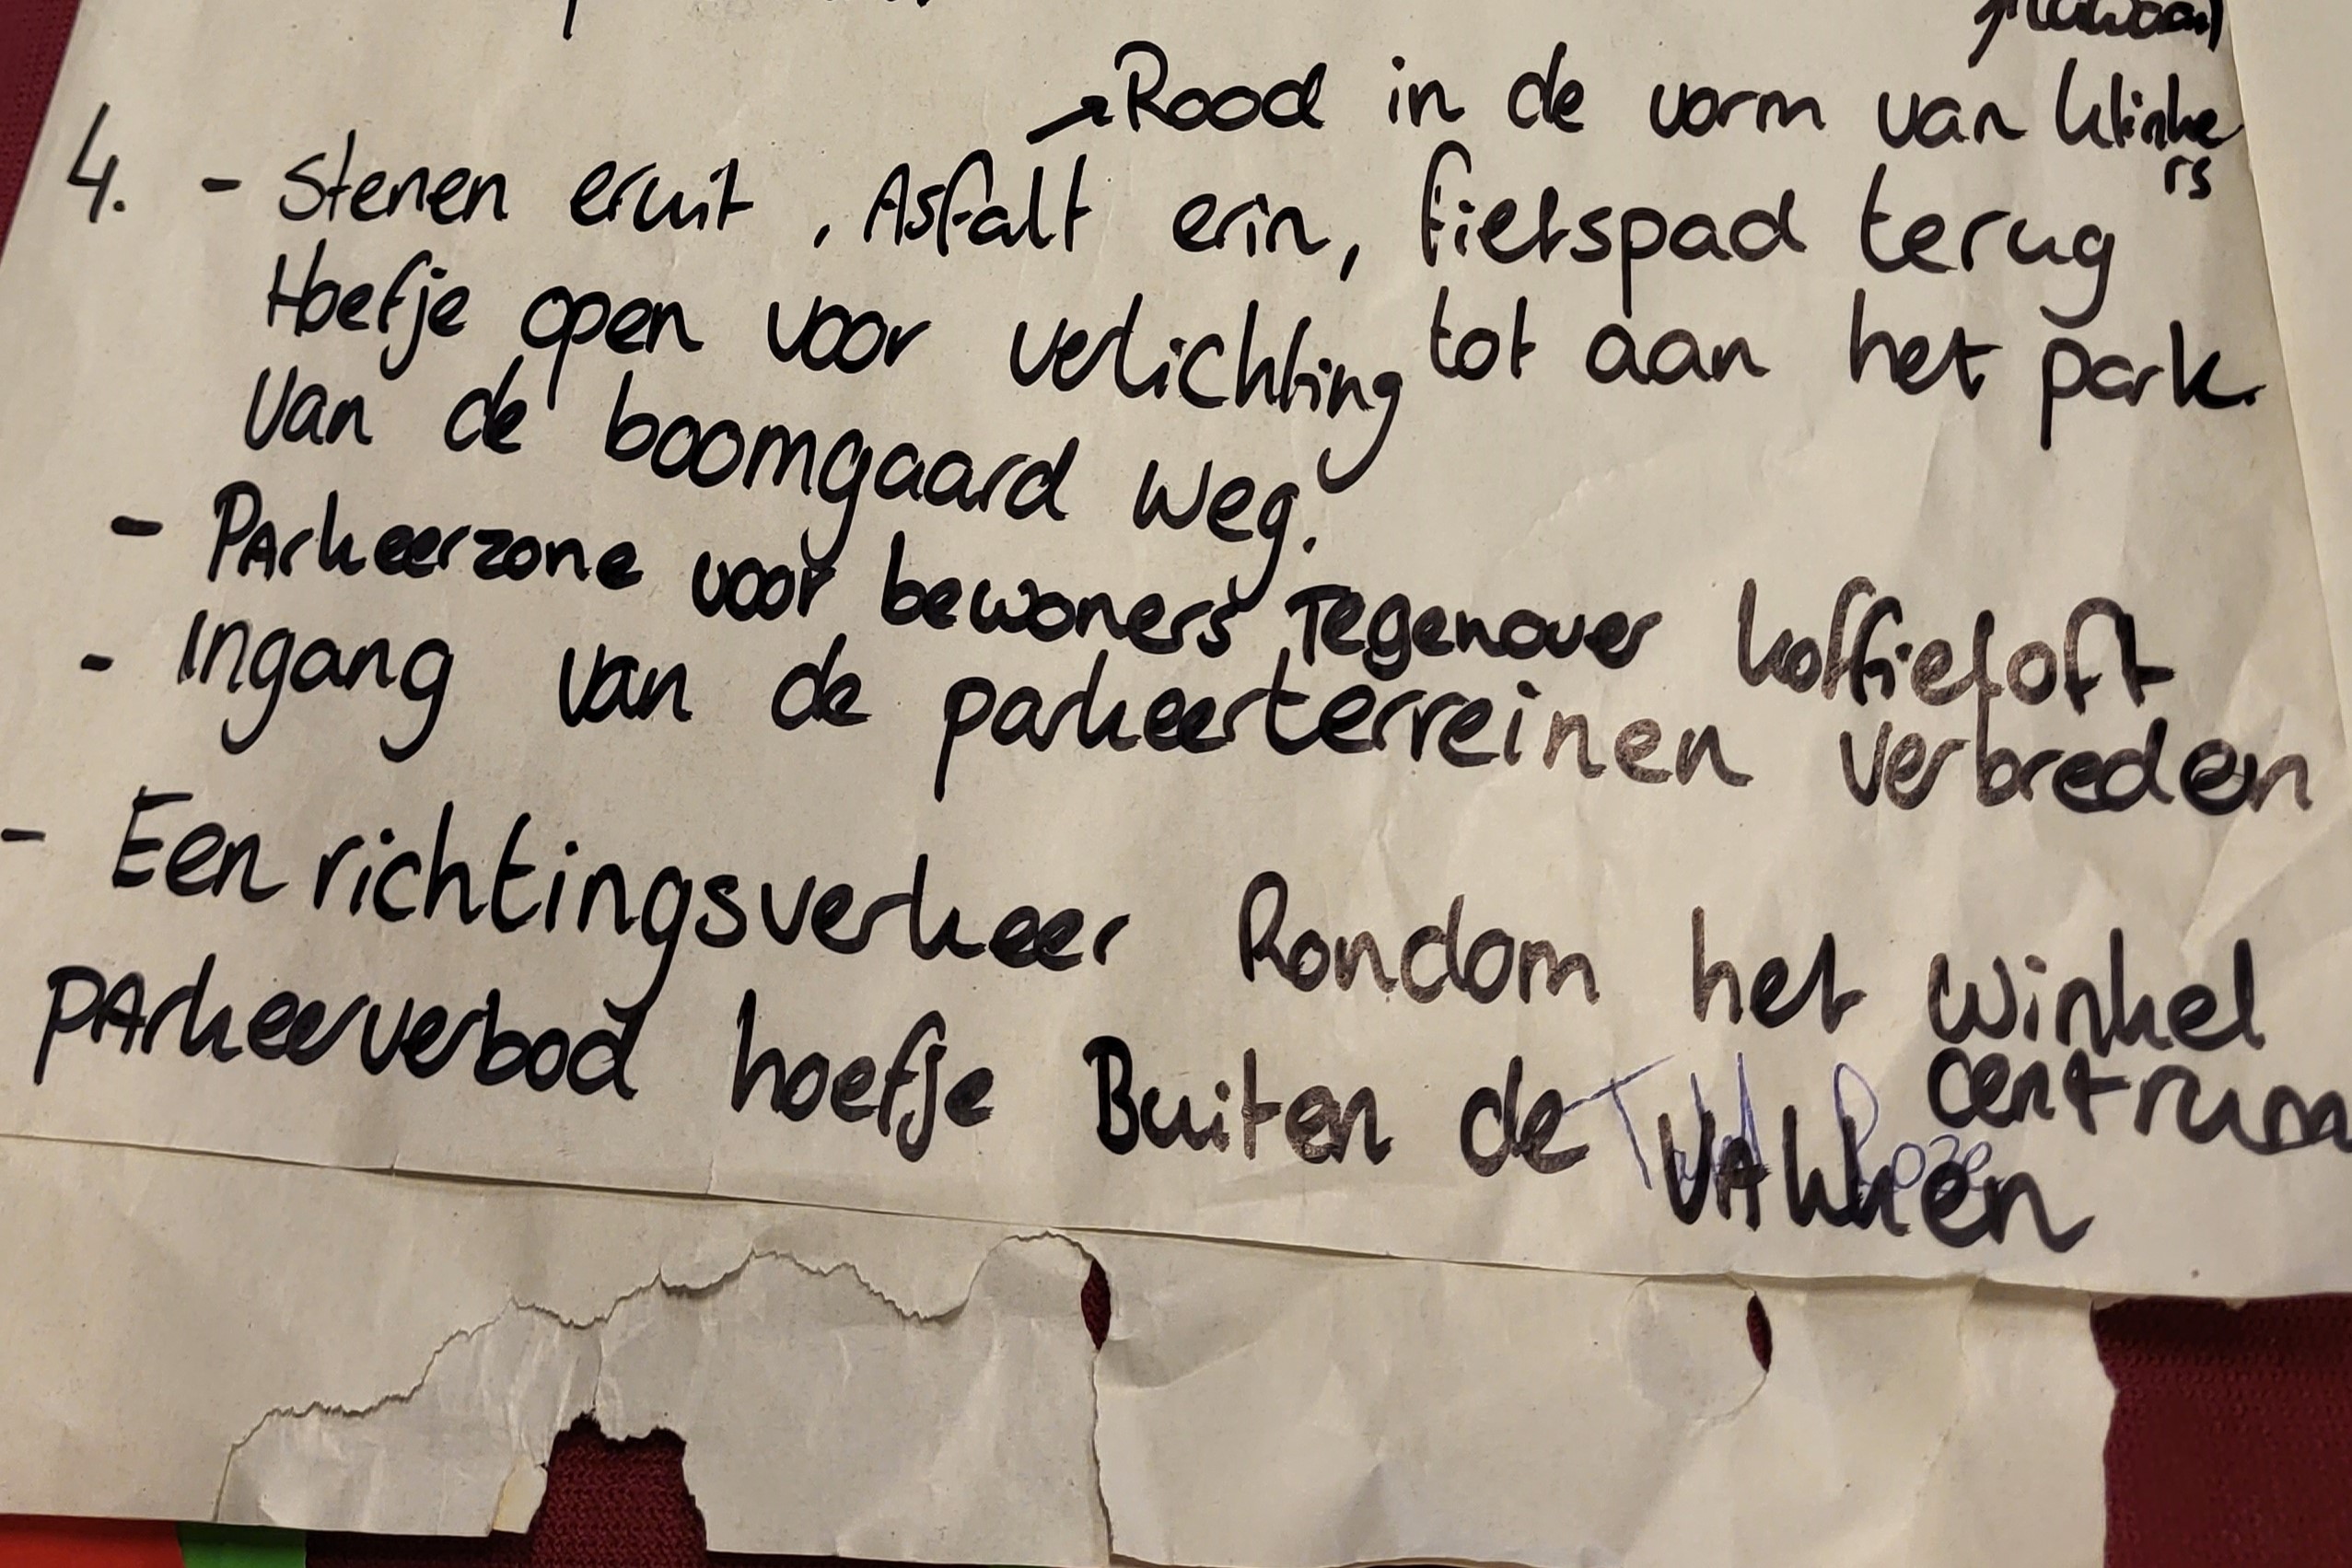 →Rood in de vorm van klinke
rs
4. - Stenen eruit, Asfalt erin, fietspad terug
Hoefje open voor verlichting tot aan het park.
Van de boomgaard weg.
- PArkeerzone voor bewoners Tegenover koffieloft
- Ingang van de parkeerterreinen verbreden
- Een richtingsverkeer Rondom het winkel
centrum
PArkeerverbod hoefje Buiten de VAkken